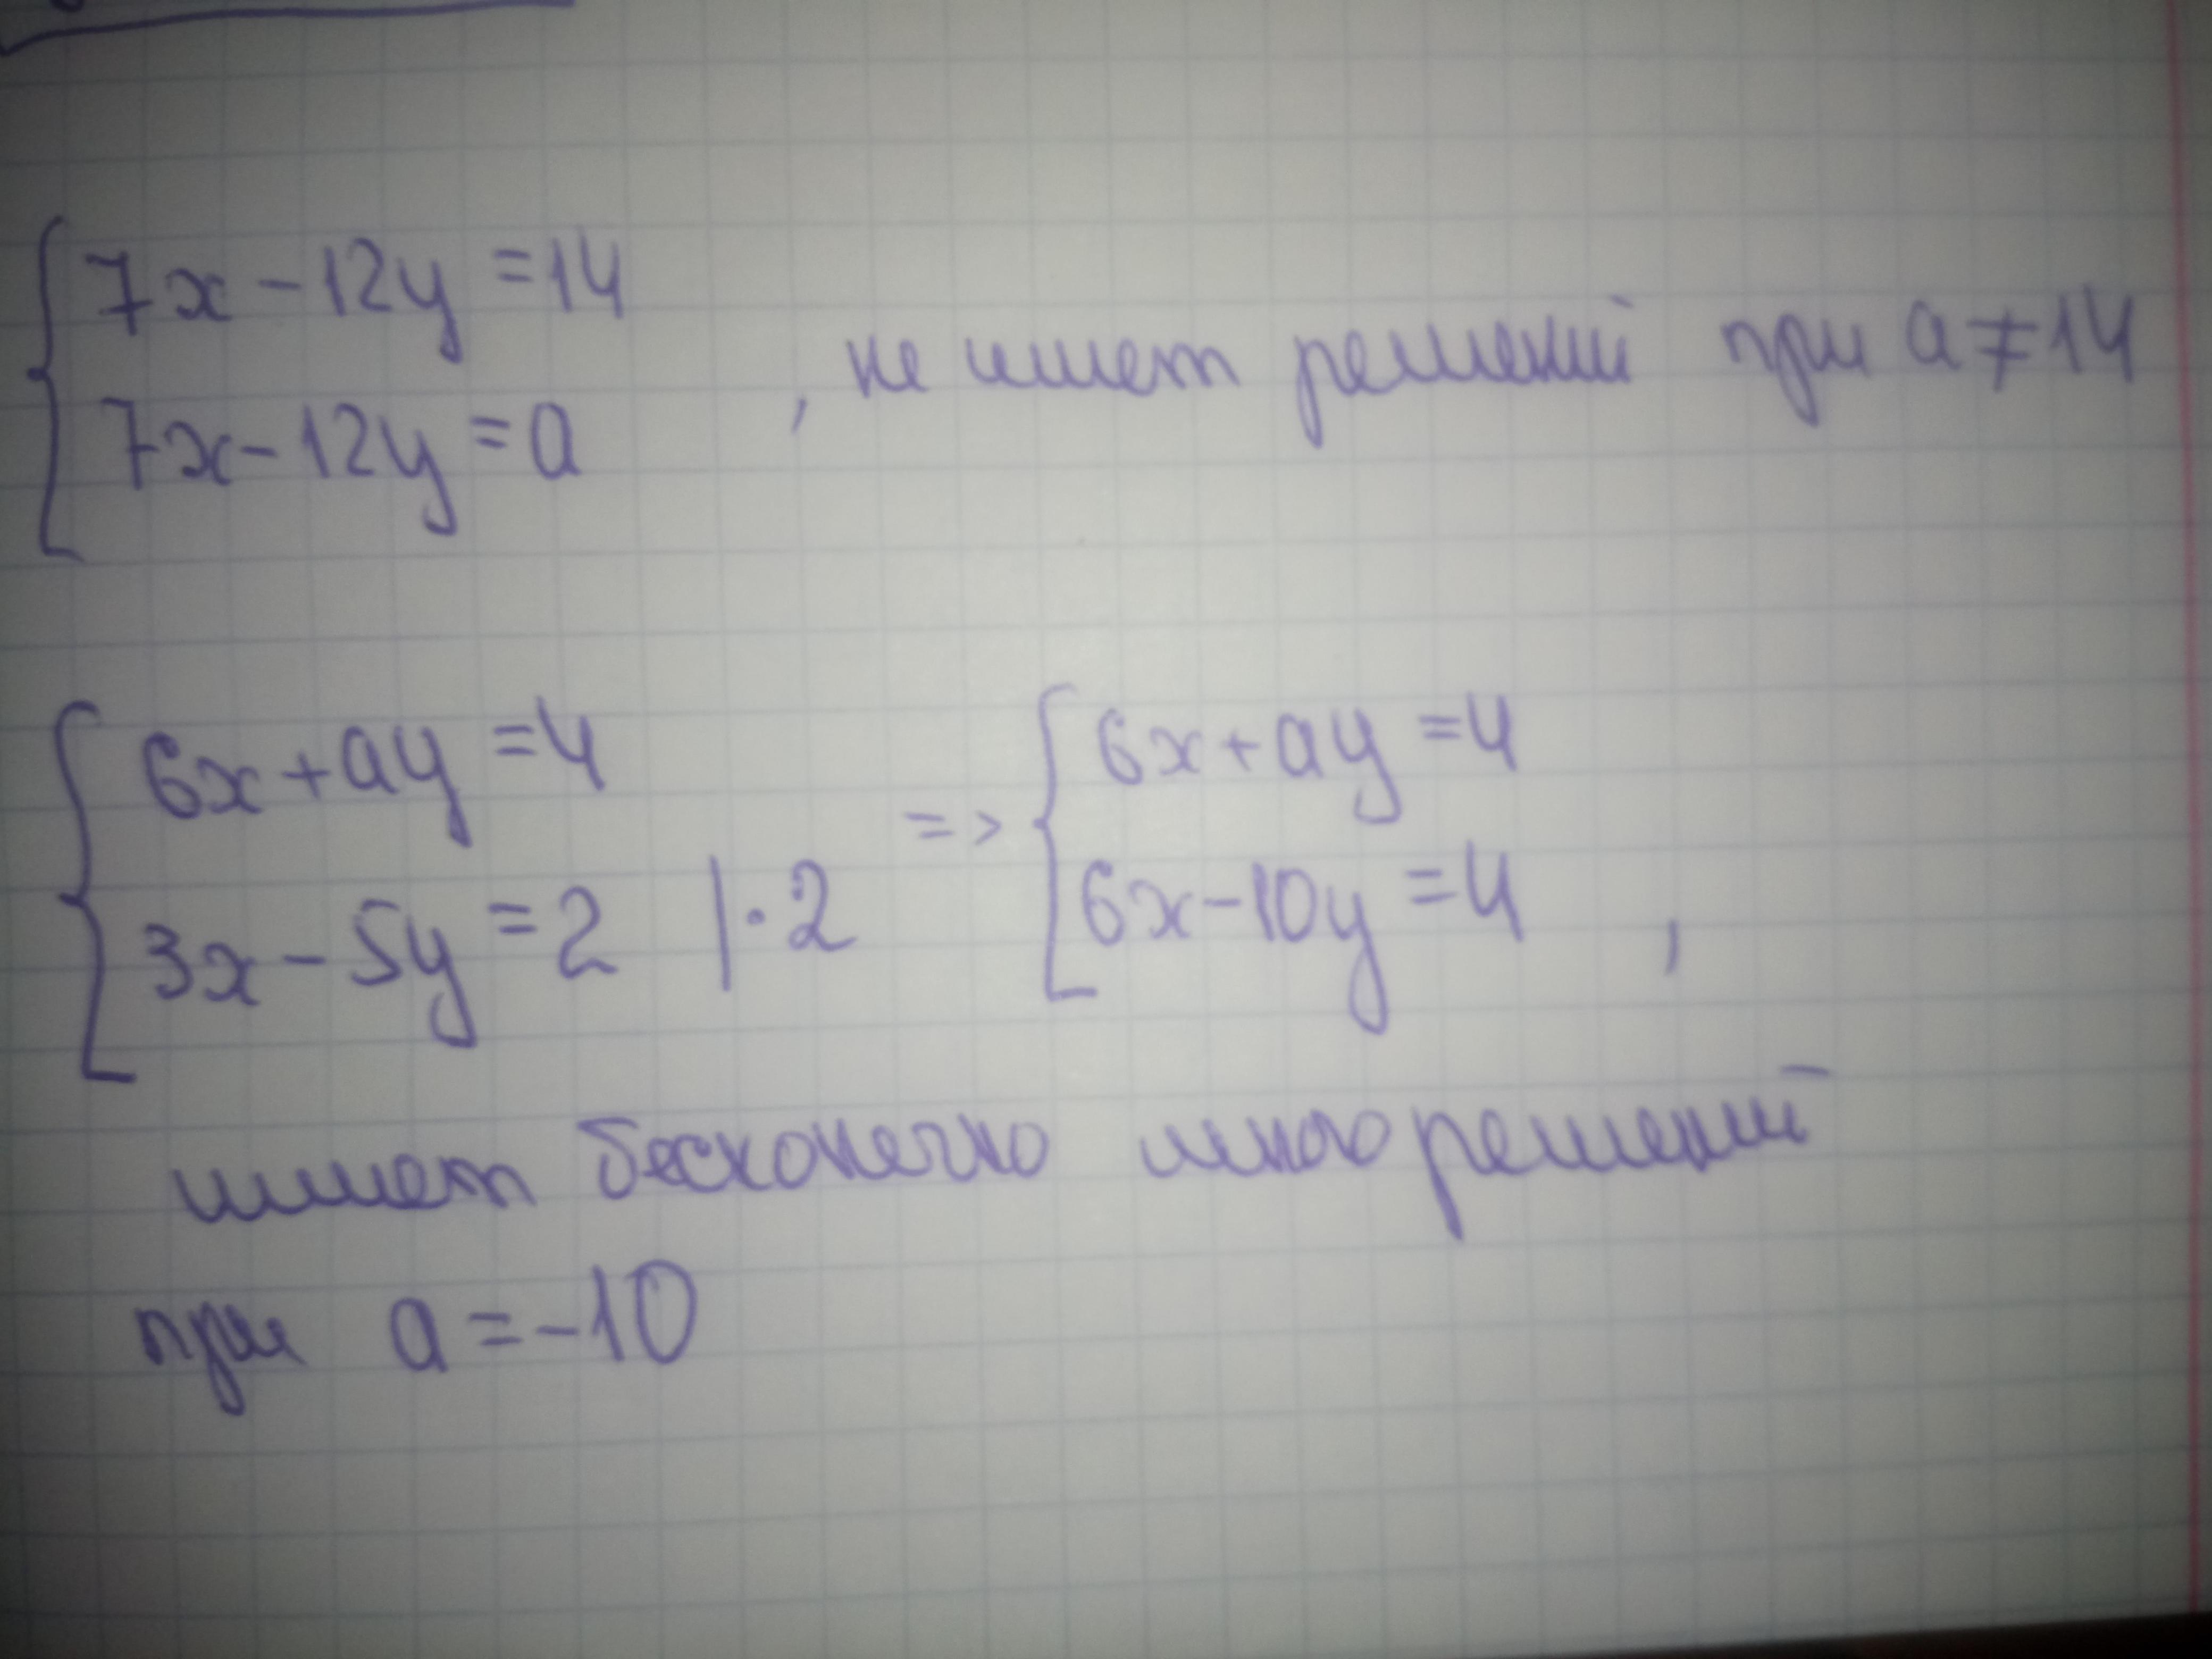 7x - 12y = 14
7x - 12y = a , не имеет решений при a ≠ 14
6x + ay = 4
3x - 5y = 2 | · 2 => 6x + ay = 4
6x - 10y = 4 ,
имеет бесконечно много решений
при a = -10